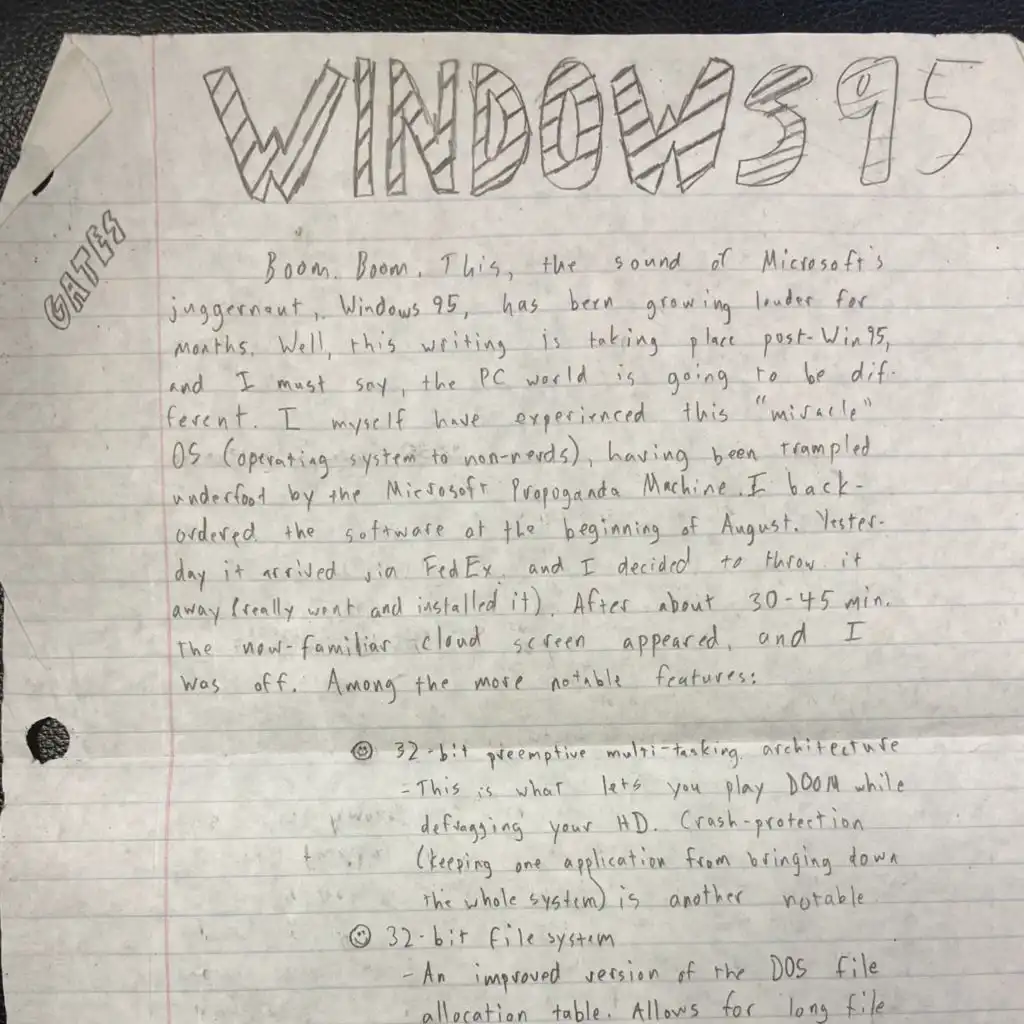 WINDOWS 95
GATES
Boom. Boom. This, the sound of Microsoft's
juggernaut, Windows 95, has been growing louder for
months. Well, this writing is taking place post-Win95,
and I must say, the PC world is going to be dif-
ferent. I myself have experienced this "miracle"
OS (operating system to non-nerds), having been trampled
underfoot by the Microsoft Propoganda Machine. I back-
ordered the software at the beginning of August. Yester-
day it arrived via FedEx, and I decided to throw it
away (really went and installed it). After about 30-45 min.
the now-familiar cloud screen appeared, and I
was off. Among the more notable features:
32-bit preemptive multi-tasking architecture
- This is what lets you play DOOM while
defragging your HD. Crash-protection
(keeping one application from bringing down
the whole system) is another notable
32-bit file system
- An improved version of the DOS file
allocation table. Allows for long file